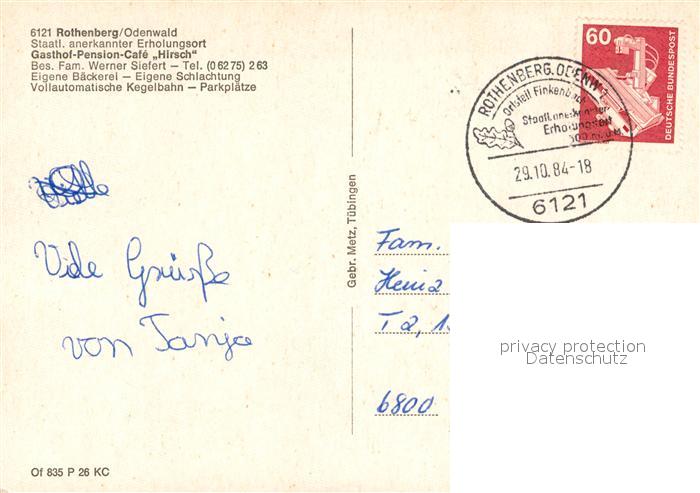 6121 Rothenberg/Odenwald
Staatl. anerkannter Erholungsort
Gasthof-Pension-Café „Hirsch“
Bes. Fam. Werner Siefert – Tel. (0 62 75) 2 63
Eigene Bäckerei – Eigene Schlachtung
Vollautomatische Kegelbahn – Parkplätze
Viele Grüße
von Tanja
Of 835 P 26 KC
Gebr. Metz, Tübingen
60
DEUTSCHE BUNDESPOST
ROTHENBERG, ODENW
Ortsteil Finkenbach
Staatl. anerkannter
Erholungsort
29.10.84-18
6121
Fam.
Heinz
T 2, 1
6800
privacy protection
Datenschutz